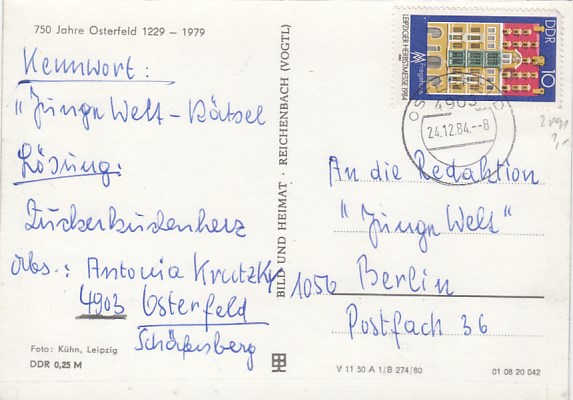 750 Jahre Osterfeld 1229 – 1979
Kennwort:
"Junge Welt-Rätsel
Lösung:
Zuckerkuchenherz
Abs.: Antonia Krutzky
4903 Osterfeld
Schäfersberg
Foto: Kühn, Leipzig
DDR 0,25 M
BILD UND HEIMAT · REICHENBACH (VOGTL)
DDR
10
LEIPZIGER HERBSTMESSE 1984
4903
24.12.84.-8
An die Redaktion
"Junge Welt"
1056 Berlin
Postfach 36
V 11 50 A 1/B 274/80
01 08 20 042